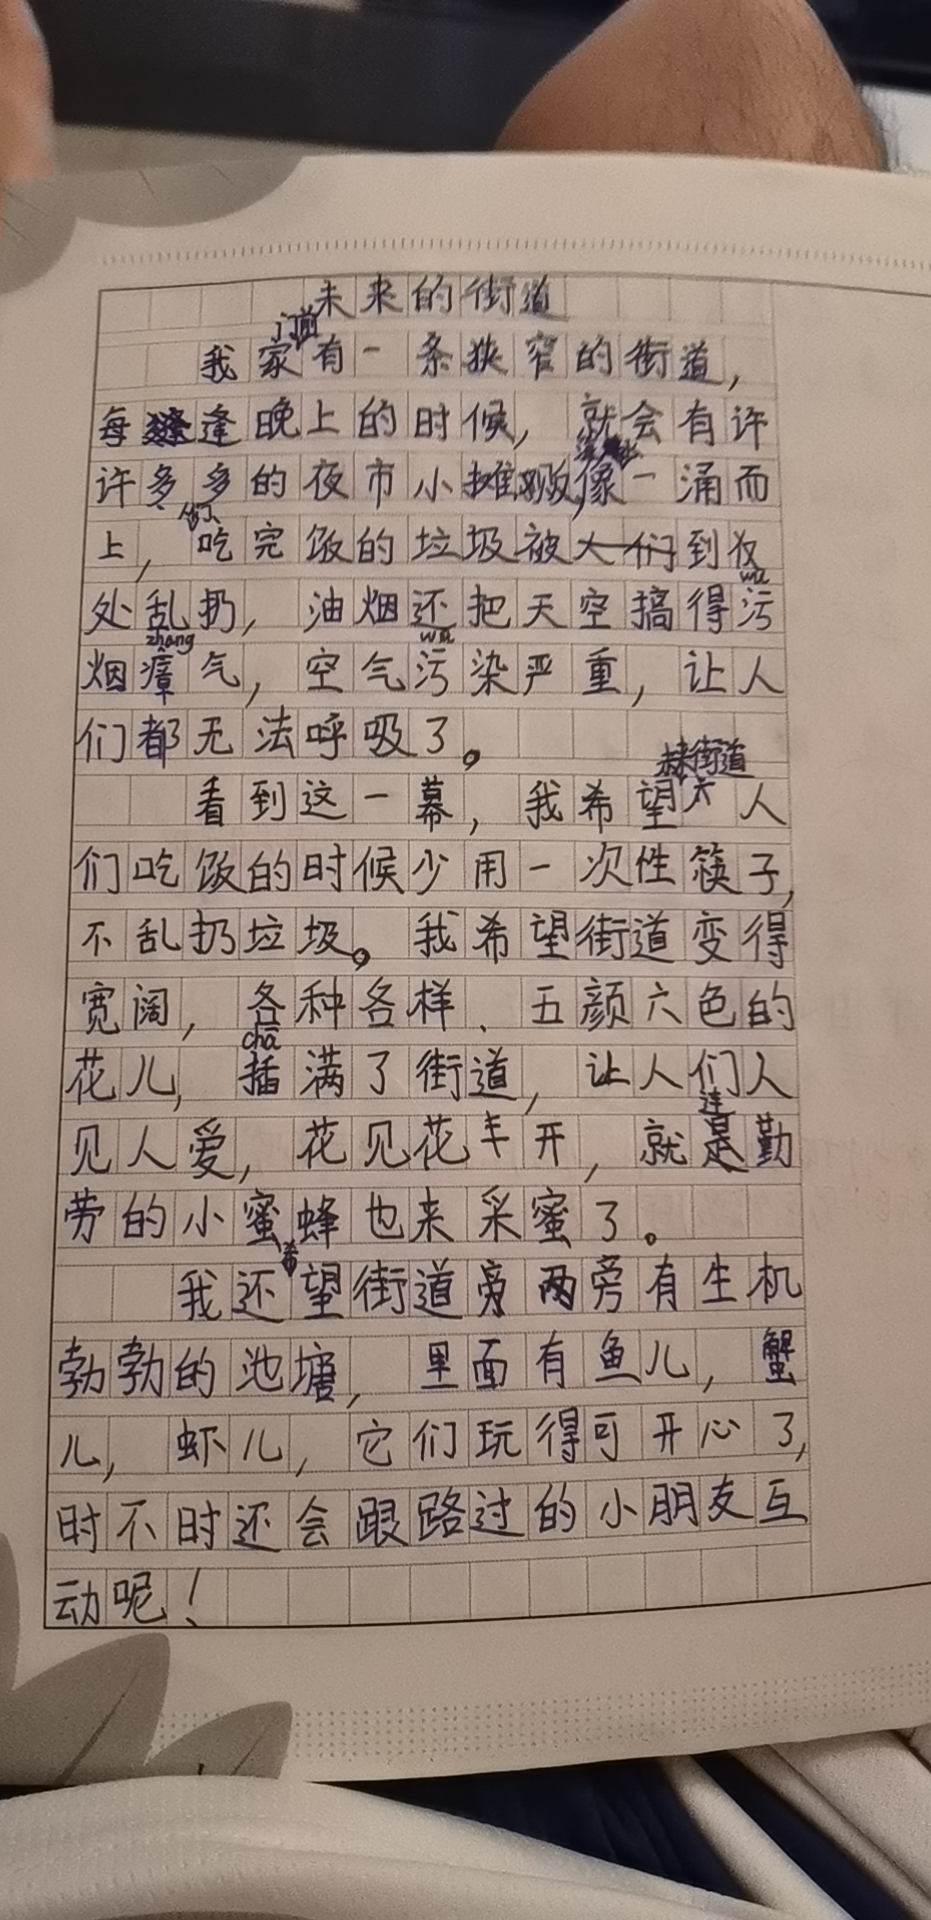 未来的街道
门前
我家有一条狭窄的街道，
每逢晚上的时候，就会有许
许多多的夜市小摊贩，像一涌而
上，吃完饭的垃圾被人们到处
wū
处乱扔，油烟还把天空搞得污
zhang wū
烟瘴气，空气污染严重，让人
们都无法呼吸了。
未来街道
看到这一幕，我希望六人
们吃饭的时候少用一次性筷子，
不乱扔垃圾。我希望街道变得
宽阔，各种各样、五颜六色的
chā
花儿，插满了街道，让人们人
连
见人爱，花见花开，就是勤
劳的小蜜蜂也来采蜜了。
希
我还望街道旁两旁有生机
勃勃的池塘，里面有鱼儿，蟹
儿，虾儿，它们玩得可开心了，
时不时还会跟路过的小朋友互
动呢！